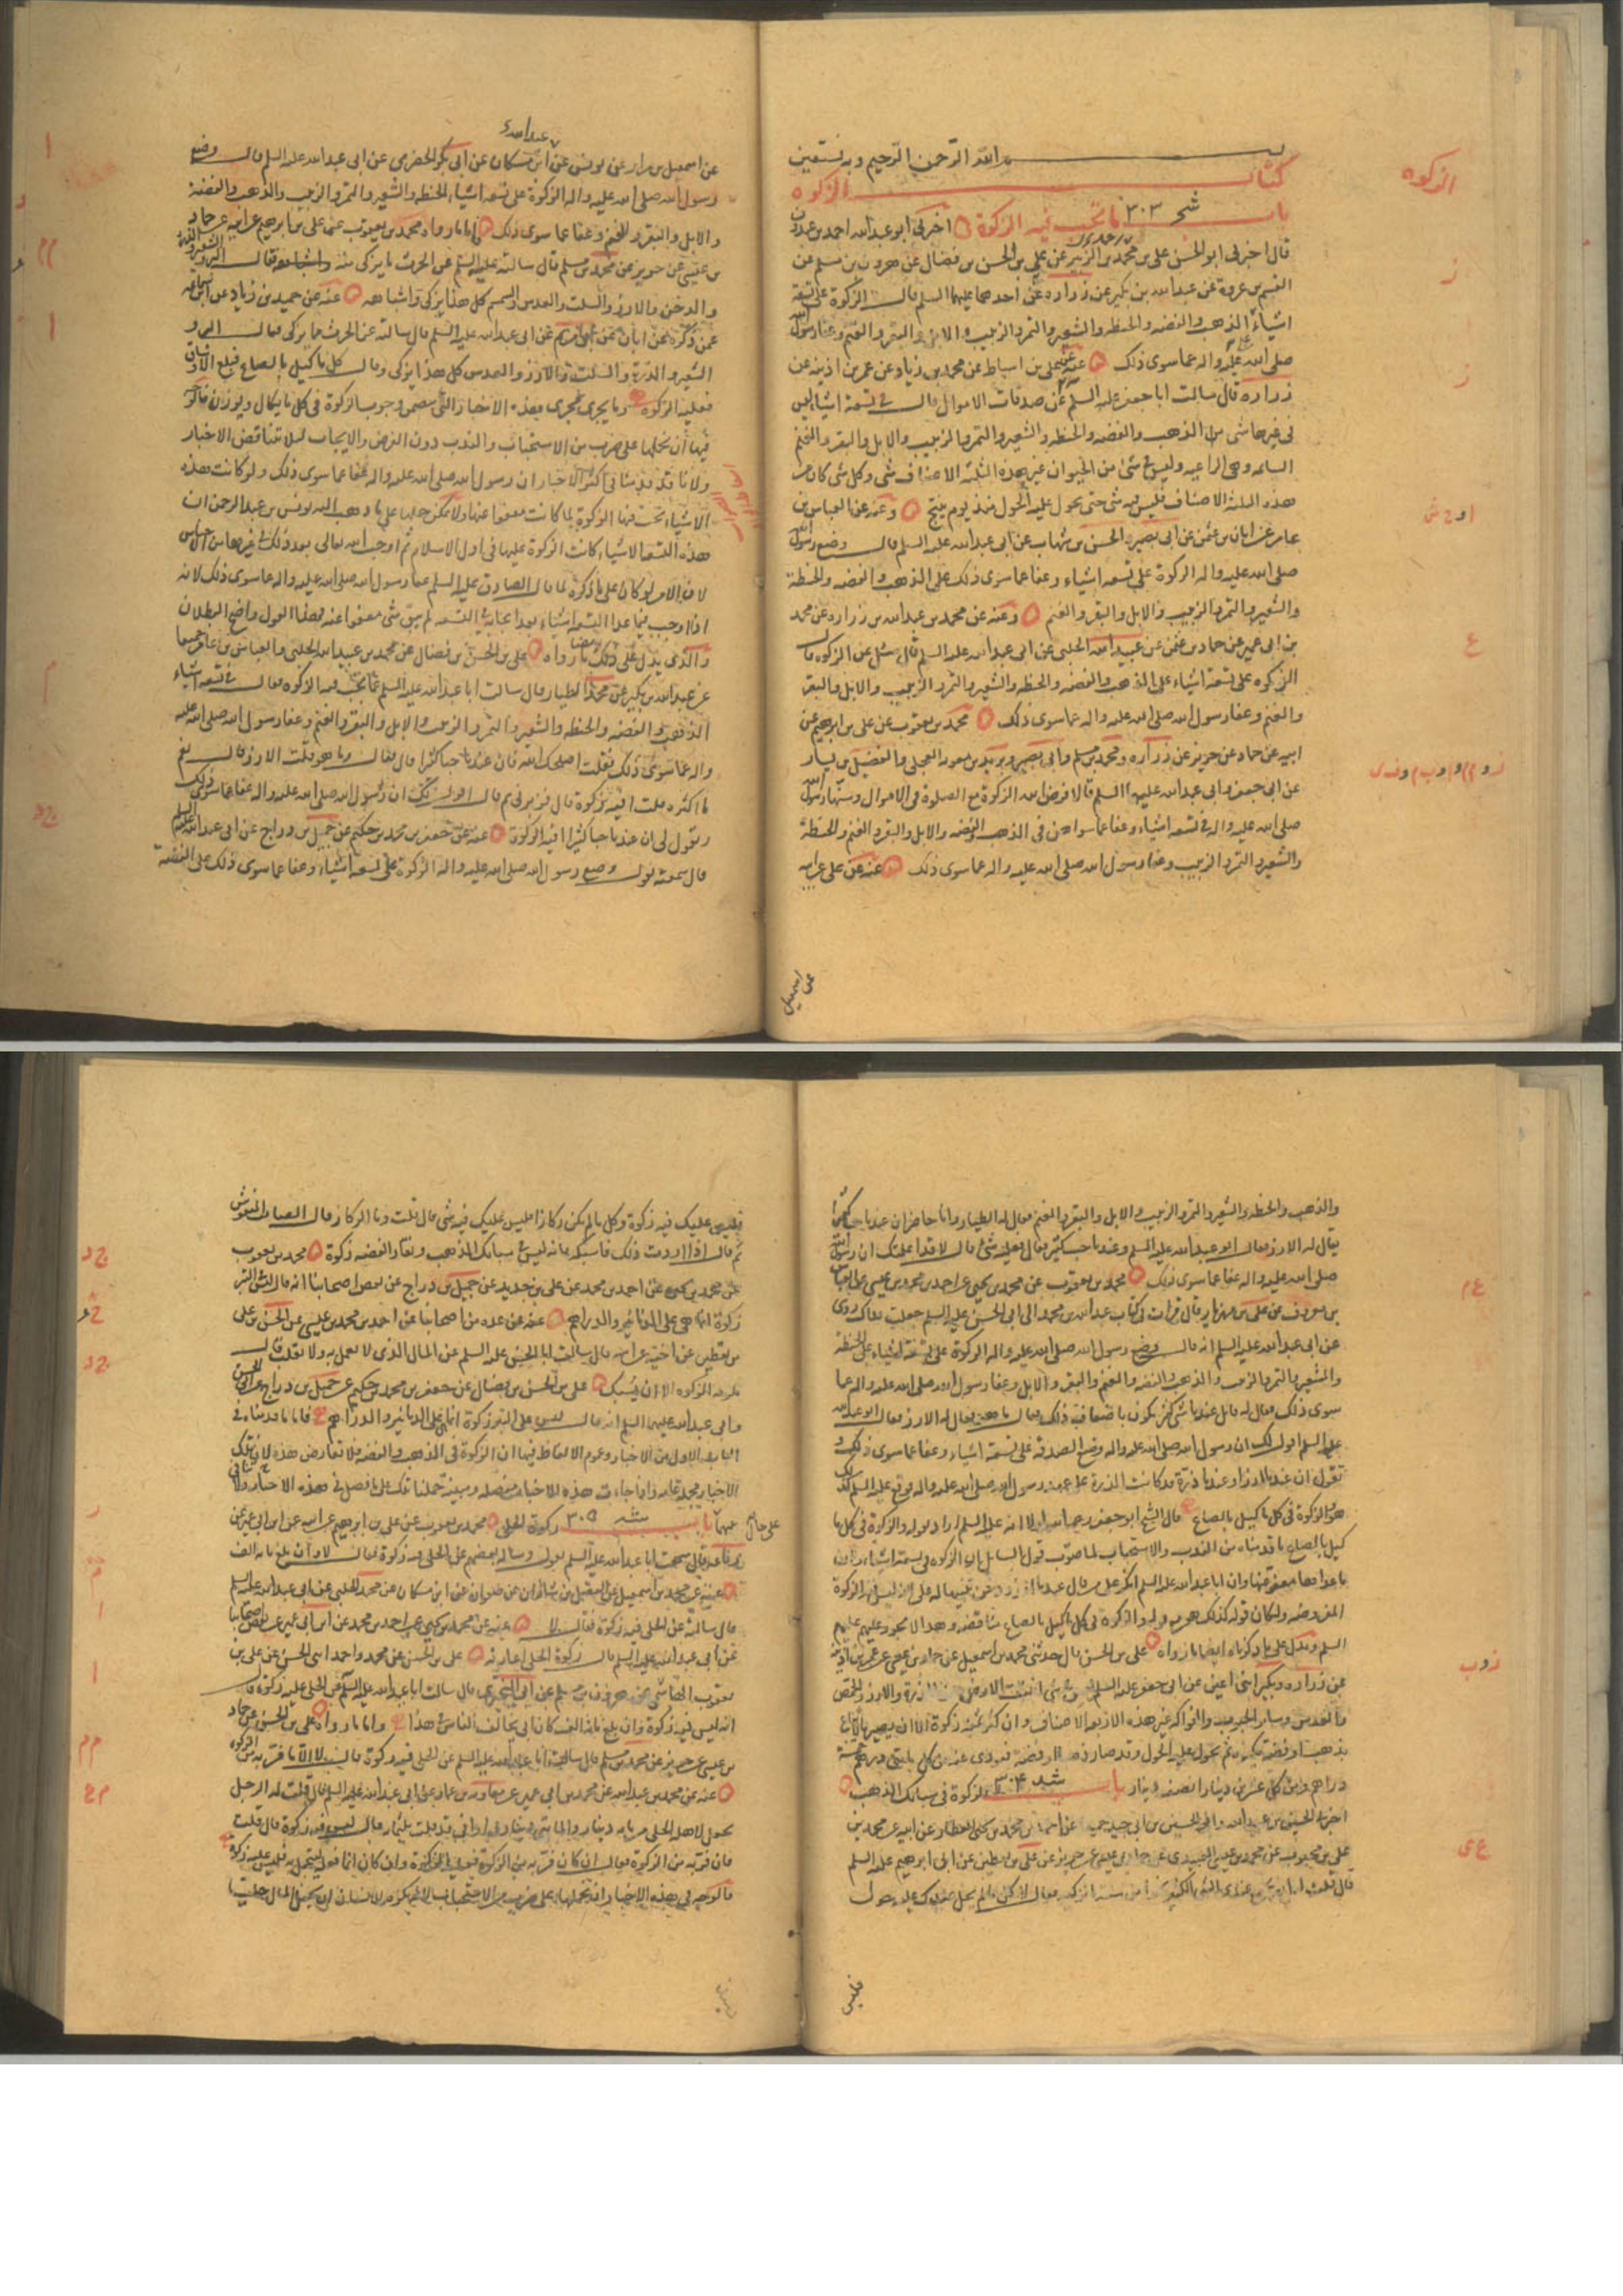 بسم الله الرحمن الرحيم وبه نستعين
الزكوه
كتاب الزكوه
باب ٣٠٣ ما تجب فيه الزكوة اخبرنى ابو عبدالله احمد بن عبدون
قال اخبرنى ابو الحسن على بن محمد بن الزبير عن على بن الحسن بن فضال عن هرون بن مسلم عن
القسم بن عروة عن عبدالله بن بكير عن زراره عن احدهما عليهما السلم قال الزكوة على تسعة
اشياء الذهب والفضه والحنطه والشعير والتمر والزبيب والابل والبقر والغنم وعفا رسول الله
صلى الله عليه واله عما سوى ذلك عنه عن على بن اسباط عن محمد بن زياد عن عمر بن اذينه عن
زراره قال سالت ابا جعفر عليه السلم عن صدقات الاموال قال فى تسعة اشياء ليس
فى غيرها شى من الذهب والفضه والحنطه والشعير والتمر والزبيب والابل والبقر والغنم
السايمه وهى الراعيه وليس فى شى من الحيوان غير هذه الثلثه الاصناف شى وكل شى كان من
هذه الثلثة الاصناف فليس فيه شى حتى يحول عليه الحول منذ يوم ينتج وعنه عن العباس بن
عامر عن ابان بن عثمن عن ابى بصير والحسن بن شهاب عن ابى عبدالله عليه السلم قال وضع رسول الله
صلى الله عليه واله الزكوة على تسعه اشياء وعفا عما سوى ذلك على الذهب والفضه والحنطة
والشعير والتمر والزبيب والابل والبقر والغنم وعنه عن محمد بن عبدالله بن زراره عن محمد
بن ابى عمير عن حماد بن عثمن عن عبيدالله الحلبى عن ابى عبدالله عليه السلم قال سئل عن الزكوه قال
الزكوه على تسعة اشياء على الذهب والفضه والحنطه والشعير والتمر والزبيب والابل والبقر
والغنم وعفا رسول الله صلى الله عليه واله عما سوى ذلك محمد بن يعقوب عن على بن ابرهيم عن
ابيه عن حماد عن حريز عن زراره ومحمد بن مسلم وابى بصير وبريد بن معويه العجلى والفضيل بن يسار
عن ابى جعفر وابى عبدالله عليهما السلم قالا فرض الله الزكوة مع الصلوة فى الاموال وسنها رسول الله
صلى الله عليه واله فى تسعه اشياء وعفا عما سواهن فى الذهب والفضه والابل والبقر والغنم والحنطة
والشعير والتمر والزبيب وعفا رسول الله صلى الله عليه واله عما سوى ذلك عنه عن على عن ابيه
عن اسمعيل
عن اسمعيل بن مرار عن يونس عن ابن مسكان عن ابى بكر الحضرمى عن ابى عبدالله عليه السلم قال وضع
رسول الله صلى الله عليه واله الزكوة على تسعه اشياء الحنطه والشعير والتمر والزبيب والذهب والفضة
والابل والبقر والغنم وعفا عما سوى ذلك فاما ما رواه محمد بن يعقوب عن على بن ابرهيم عن ابيه عن حماد
بن عيسى عن حريز عن محمد بن مسلم قال سالته عليه السلم عن الحرث ما يزكى منه واشباهه فقال البر والشعير والذرة
والدخن والارز والسلت والعدس والسمسم كل هذا يزكى واشباهه عنه عن حميد بن زياد عن ابن سماعه
عمن ذكره عن ابان عن ابى مريم عن ابى عبدالله عليه السلم قال سالته عن الحرث ما يزكى فقال البر و
الشعير والذرة والسلت والارز والعدس كل هذا يزكى وقال كل ما كيل بالصاع فبلغ الاوساق
فعليه الزكوه وما يجرى مجرى هذه الاخبار التى تتضمن وجوب الزكوة فى كل ما يكال ويوزن فالوجه
فيها ان نحملها على ضرب من الاستحباب والندب دون الفرض والايجاب لئلا تتناقض الاخبار
ولانا قد قدمنا فى اكثر الاخبار ان رسول الله صلى الله عليه واله عفا عما سوى ذلك ولو كانت هذه
الاشياء تجب فيها الزكوة لما كانت معفوا عنها ولا يمكن حملها على ما ذهب اليه يونس بن عبدالرحمن ان
هذه التسعه الاشياء كانت الزكوة عليها فى اول الاسلام ثم اوجب الله تعالى بعد ذلك فى غيرها من الاجناس
لان الامر لو كان على ما ذكره لما قال الصادق عليه السلم عفا رسول الله صلى الله عليه واله عما سوى ذلك لانه
اذا وجب فيما عدا التسعه اشياء بعد ايجابه فى التسعه لم يبق شى معفوا عنه فهذا القول واضح البطلان
والذى يدل على ذلك ما رواه على بن الحسن بن فضال عن محمد بن عبيدالله الحلبى والعباس بن عامر جميعا
عن عبدالله بن بكير عن محمد الطيار قال سالت ابا عبدالله عليه السلم عما تجب فيه الزكوه فقال فى تسعه اشياء
الذهب والفضه والحنطه والشعير والتمر والزبيب والابل والبقر والغنم وعفا رسول الله صلى الله عليه
واله عما سوى ذلك فقلت اصلحك الله فان عندنا حبا كثيرا قال فقال وما هو قلت الارز قال نعم
ما اكثره فقلت افيه زكوة قال فزبرنى ثم قال اقول لك ان رسول الله صلى الله عليه واله عفا عما سوى ذلك
وتقول لى ان عندنا حبا كثيرا افيه الزكوة عنه عن جعفر بن محمد بن حكيم عن جميل بن دراج عن ابى عبدالله عليه السلم
قال سمعته يقول وضع رسول الله صلى الله عليه واله الزكوة على تسعه اشياء وعفا عما سوى ذلك على الفضة
والذهب والحنطه والشعير والتمر والزبيب والابل والبقر والغنم فقال له الطيار وانا حاضر ان عندنا حبا كثيرا
يقال له الارز فقال ابو عبدالله عليه السلم وعندنا حب كثير قال فعليه شى قال لا قد اعلمتك ان رسول الله
صلى الله عليه واله عفا عما سوى ذلك محمد بن يعقوب عن محمد بن يحيى عن احمد بن محمد بن عيسى عن العباس
بن معروف عن على بن مهزيار قال قرات فى كتاب عبدالله بن محمد الى ابى الحسن عليه السلم جعلت فداك روى
عن ابى عبدالله عليه السلم انه قال وضع رسول الله صلى الله عليه واله الزكوة على تسعة اشياء على الحنطة
والشعير والتمر والزبيب والذهب والفضه والغنم والبقر والابل وعفا رسول الله صلى الله عليه واله عما
سوى ذلك فقال له قائل عندنا شى كثير يكون باضعاف ذلك فقال ما هو فقال له الارز فقال ابو عبدالله
عليه السلم اقول لك ان رسول الله صلى الله عليه واله وضع الصدقه على تسعة اشياء وعفا عما سوى ذلك و
تقول ان عندنا ارزا وعندنا ذرة قد كانت الذرة على عهد رسول الله صلى الله عليه واله فوقع عليه السلم كذلك
هو والزكوة فى كل ما كيل بالصاع قال الشيخ ابو جعفر رحمه الله لولا انه عليه السلم اراد بقوله والزكوة فى كل ما
كيل بالصاع ما قدمناه من الندب والاستحباب لما صوب قول السايل ان الزكوه فى تسعة اشياء وان
ما عداها معفو عنها وان ابا عبدالله عليه السلم انكر على من قال عندنا ارز
المفروضه ولكان قوله كذلك هو مع قوله والزكوه فى كل ما كيل بالصاع متناقضا وهذا لا يجوز عليهم عليهم
السلم ويدل على ما ذكرناه ايضا ما رواه على بن الحسن قال حدثنى محمد بن اسمعيل عن حماد بن عيسى عن عمر بن اذينه
عن زراره وبكير ابنى اعين عن ابى جعفر عليه السلم قال ليس فى شى انبتت الارض من الذرة والارز والحمص
والعدس وساير الحبوب والفواكه غير هذه الاربعه الاصناف وان كثر ثمنه زكوة الا ان يصير مالا يباع
بذهب او فضة يكنزه ثم يحول عليه الحول وقد صار ذهبا او فضة فيودى عنه من كل مايتى درهم خمسة
دراهم ومن كل عشرين دينارا نصف دينار باب ٣٠٤ الزكوة فى سبايك الذهب
اخبرنى الحسين بن عبيدالله وابو الحسين بن ابى جيد جميعا عن احمد بن محمد بن يحيى العطار عن ابيه عن محمد بن
على بن محبوب عن محمد بن عيسى العبيدى عن حماد بن عيسى عن حريز عن على بن يقطين عن ابى ابرهيم عليه السلم
فليس
فليس عليك فيه زكوة وكل ما لم يكن ركازا فليس عليك فيه شى قال قلت وما الركاز قال الصامت المنقوش
ثم قال اذا اردت ذلك فاسبكه فانه ليس فى سبايك الذهب ونقار الفضه زكوة محمد بن يعقوب
عن محمد بن يحيى عن احمد بن محمد عن على بن حديد عن جميل بن دراج عن بعض اصحابنا انه قال ليس فى التبر
زكوة انما هى على الدنانير والدراهم عنه عن عده من اصحابنا عن احمد بن محمد بن عيسى عن الحسن بن على
بن يقطين عن اخيه عن ابيه قال سالت ابا الحسن عليه السلم عن المال الذى لا يعمل به ولا يقلب قال
تلزمه الزكوه الا ان يسبك على بن الحسن بن فضال عن جعفر بن محمد بن حكيم عن جميل بن دراج عن ابى الحسن
وابى عبدالله عليهما السلم انه قال ليس على التبر زكوة انما هى على الدنانير والدراهم فاما ما قدمناه فى
الباب الاول من الاخبار وعموم الالفاظ فيها ان الزكوة فى الذهب والفضه فلا تعارض هذه لان تلك
الاخبار مجمله عامه واذا جاءت هذه الاخبار مفصله ومبينة حملنا تلك على ما فصل فى هذه الاخبار ولا تنافى
على حال
بينها باب ٣٠٥ زكوة الحلى محمد بن يعقوب عن على بن ابرهيم عن ابيه عن ابن ابى عمير عن
رفاعه قال سمعت ابا عبدالله عليه السلم يقول وساله بعضهم عن الحلى فيه زكوة فقال لا وان بلغ مائه الف
عنه عن محمد بن اسمعيل عن الفضل بن شاذان عن صفوان عن ابن مسكان عن محمد الحلبى عن ابى عبدالله عليه السلم
قال سالته عن الحلى فيه زكوة فقال لا عنه عن محمد بن يحيى عن احمد بن محمد عن ابن ابى عمير عن بعض اصحابنا
عن ابى عبدالله عليه السلم قال زكوة الحلى اعارته على بن الحسن عن محمد واحمد ابنى الحسن عن على بن
يعقوب الهاشمى عن هرون بن مسلم عن ابى البخترى قال سالت ابا عبدالله عليه السلم عن الحلى عليه زكوة قال
انه ليس فيه زكوة وان بلغ مائه الف كان ابى يخالف الناس فى هذا واما ما رواه على بن الحسن عن حماد
بن عيسى عن حريز عن محمد بن مسلم قال سالت ابا عبدالله عليه السلم عن الحلى فيه زكوة قال لا الا ما فر به من الزكوه
عنه عن محمد بن عبدالله عن محمد بن ابى عمير عن معاويه بن عمار عن ابى عبدالله عليه السلم قال قلت له الرجل
يجعل لاهله الحلى من مايه دينار والمايتى دينار
فان فر به من الزكوة فقال ان كان فر به من الزكوة فعليه الزكوة وان كان انما فعله ليتجمل به فليس عليه زكوة
فالوجه فى هذه الاخبار ان نحملها على ضرب من الاستحباب